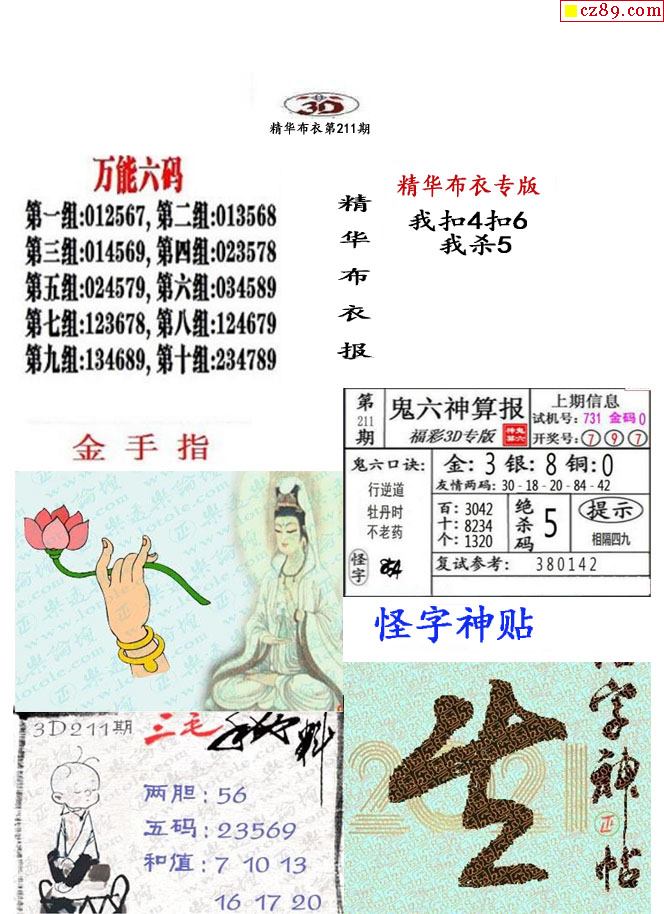 cz89.com
3D
精华布衣第211期
万能六码
第一组:012567, 第二组:013568
第三组:014569, 第四组:023578
第五组:024579, 第六组:034589
第七组:123678, 第八组:124679
第九组:134689, 第十组:234789
精华布衣报
精华布衣专版
我扣4扣6
我杀5
第211期
鬼六神算报
福彩3D专版
上期信息
试机号: 731 金码0
开奖号: 7 9 7
鬼六口诀:
行逆道
牡丹时
不老药
怪字
金: 3 银: 8 铜: 0
友情两码: 30-18-20-84-42
百: 3042
十: 8234
个: 1320
绝杀码
5
提示
相隔四九
复试参考: 380142
金手指
怪字神贴
3D211期
三毛
料
两胆: 56
五码: 23569
和值: 7 10 13
16 17 20
2021
字神帖